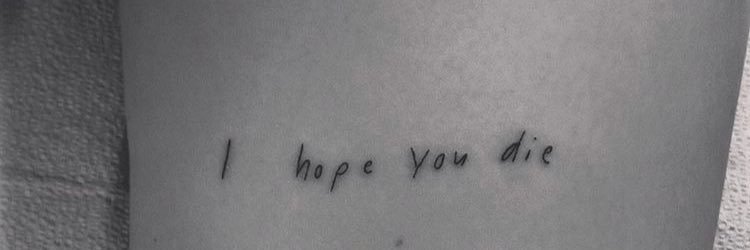 I hope you die